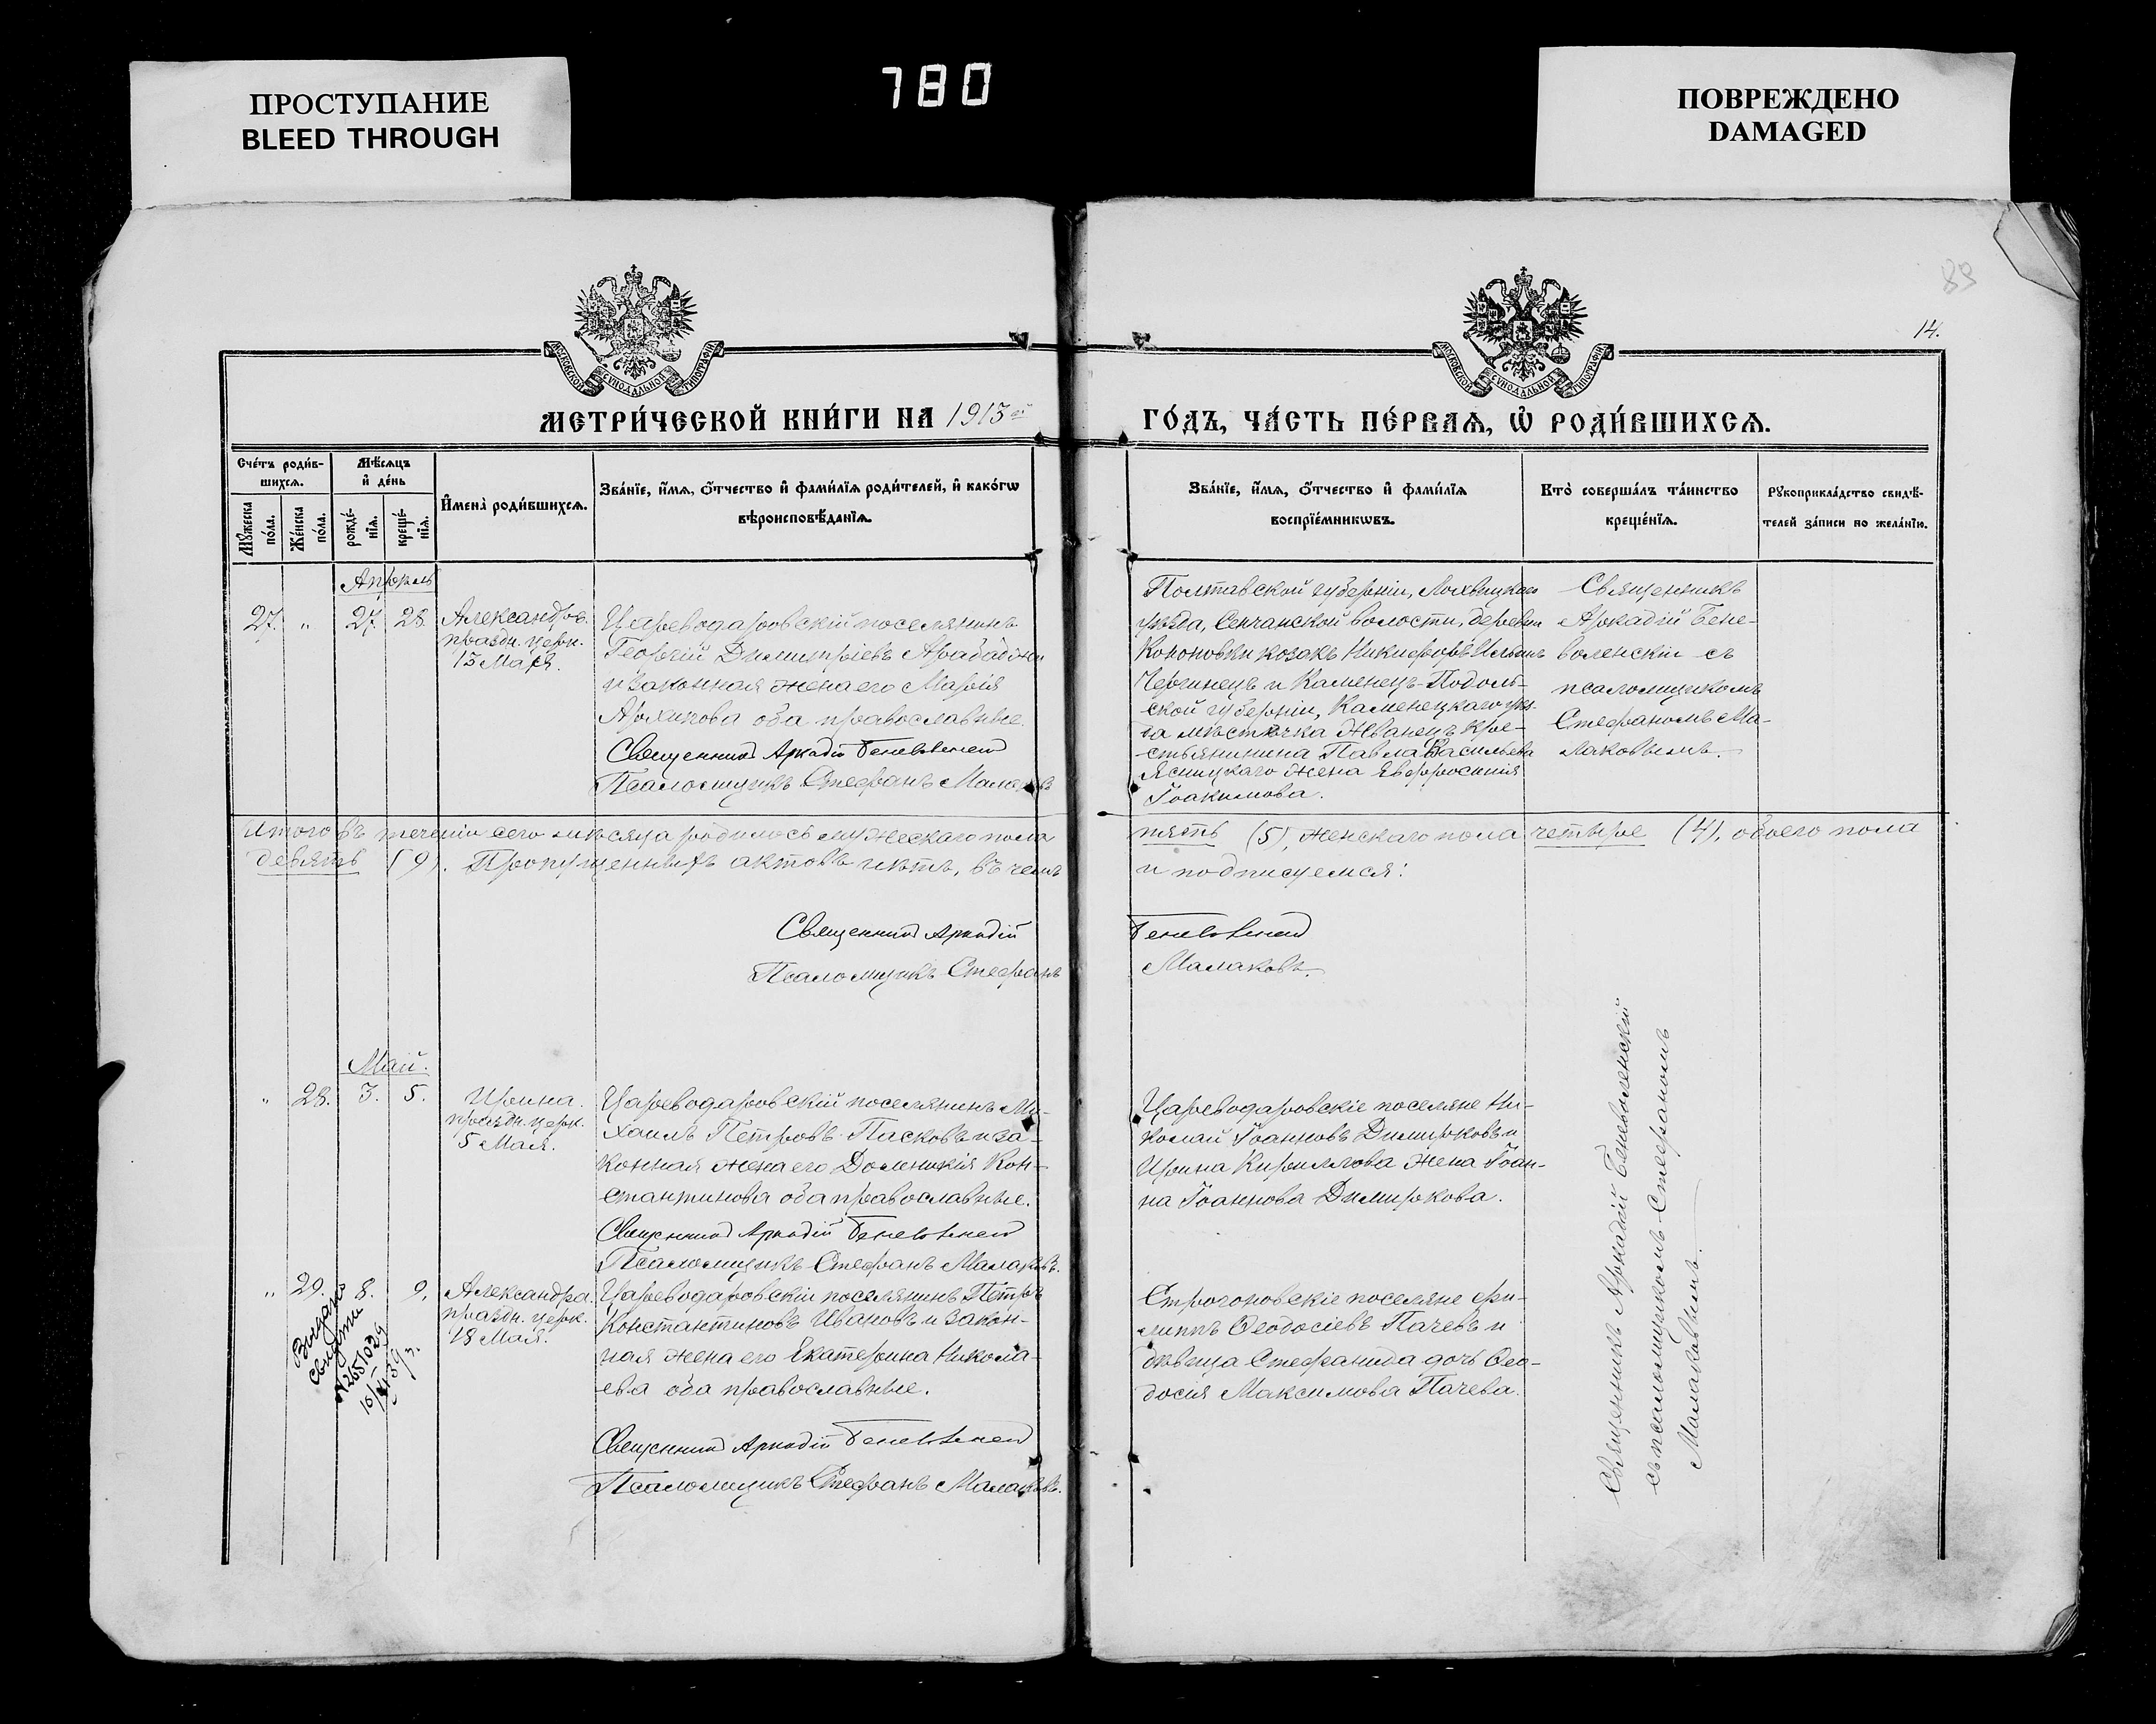 ПРОСТУПАНИЕ
BLEED THROUGH
780
ПОВРЕЖДЕНО
DAMAGED
89
14.
МОСКОВСКОЙ СѴНОДАЛЬНОЙ ТИПОГРАФІИ
МОСКОВСКОЙ СѴНОДАЛЬНОЙ ТИПОГРАФІИ
МЕТРИ́ЧЕСКОЙ КНИ́ГИ НА 1913 ГО́ДЪ, ЧА́СТЬ ПЕ́РВАѦ, Ѡ҆ РОДИ́ВШИХСѦ.
Сче́тъ роди́в-
шихсѧ.
Мꙋ́жеска по́ла.
Же́нска по́ла.
Мѣ́сѧцъ
и҆ де́нь
рожде́-
нїѧ.
креще́-
нїѧ.
И҆мена̀ роди́вшихсѧ.
Зва́нїе, и҆́мѧ, ѻ҆́тчество и҆ фами́лїѧ роди́телей, и҆ како́гѡ
вѣроисповѣ́данїѧ.
Зва́нїе, и҆́мѧ, ѻ҆́тчество и҆ фами́лїѧ
воспрїе́мникѡвъ.
Кто̀ соверша́лъ та́инство
креще́нїѧ.
Рꙋкоприкла́дство свидѣ́-
телей за́писи по жела́нїю.
Апрѣль
27. " 27. 28. Александръ.
праздн. церк.
13 Мая.
Цареводаровскій поселянинъ
Георгій Димитріевъ
и законная жена его Марія
Архипова оба православные.
Священникъ Аркадій Беневоленскій
Псаломщикъ Стефанъ Малаковъ
Полтавской губерніи, Лохвицкаго
уѣзда, Сенчанской волости, деревни
Кононовки козакъ Никифоръ
и Каменецъ-Подоль-
ской губерніи, Каменецкаго уѣз-
да мѣстечка Жванецъ кре-
стьянинина Павла Васильева
Ясницкаго жена Евфросинія
Іоакимова.
Священникъ
Аркадій Бене-
воленскій съ
псаломщикомъ
Стефаномъ Ма-
лаковымъ.
Итого въ теченіи сего мѣсяца родилось мужескаго пола пять (5), женскаго пола четыре (4), обоего пола
девять (9). Пропущенныхъ актовъ нѣтъ, въ чемъ и подписуемся:
Священникъ Аркадій Беневоленскій
Псаломщикъ Стефанъ Малаковъ.
Май.
" 28. 3. 5. Ирина.
праздн. церк.
5 Мая.
Цареводаровскій поселянинъ Ми-
хаилъ Петровъ Пасковъ и за-
конная жена его Доминикія Кон-
стантинова оба православные.
Священникъ Аркадій Беневоленскій
Псаломщикъ Стефанъ Малаковъ.
Цареводаровскіе поселяне Ни-
колай Іоанновъ Димирковъ и
Ирина Кириллова жена Іоан-
на Іоаннова Димиркова.
" 29. 8. 9. Александра.
праздн. церк.
18 Мая.
Цареводаровскій поселянинъ Петръ
Константиновъ Ивановъ и закон-
ная жена его Екатерина Никола-
ева оба православные.
Священникъ Аркадій Беневоленскій
Псаломщикъ Стефанъ Малаковъ.
Строгоновскіе поселяне Фи-
липпъ Ѳеодосіевъ Пачевъ и
дѣвица Стефанида дочь Ѳео-
досія Максимова Пачева.
Священникъ Аркадій Беневоленскій
съ псаломщикомъ Стефаномъ
Малаковымъ.
Выдано